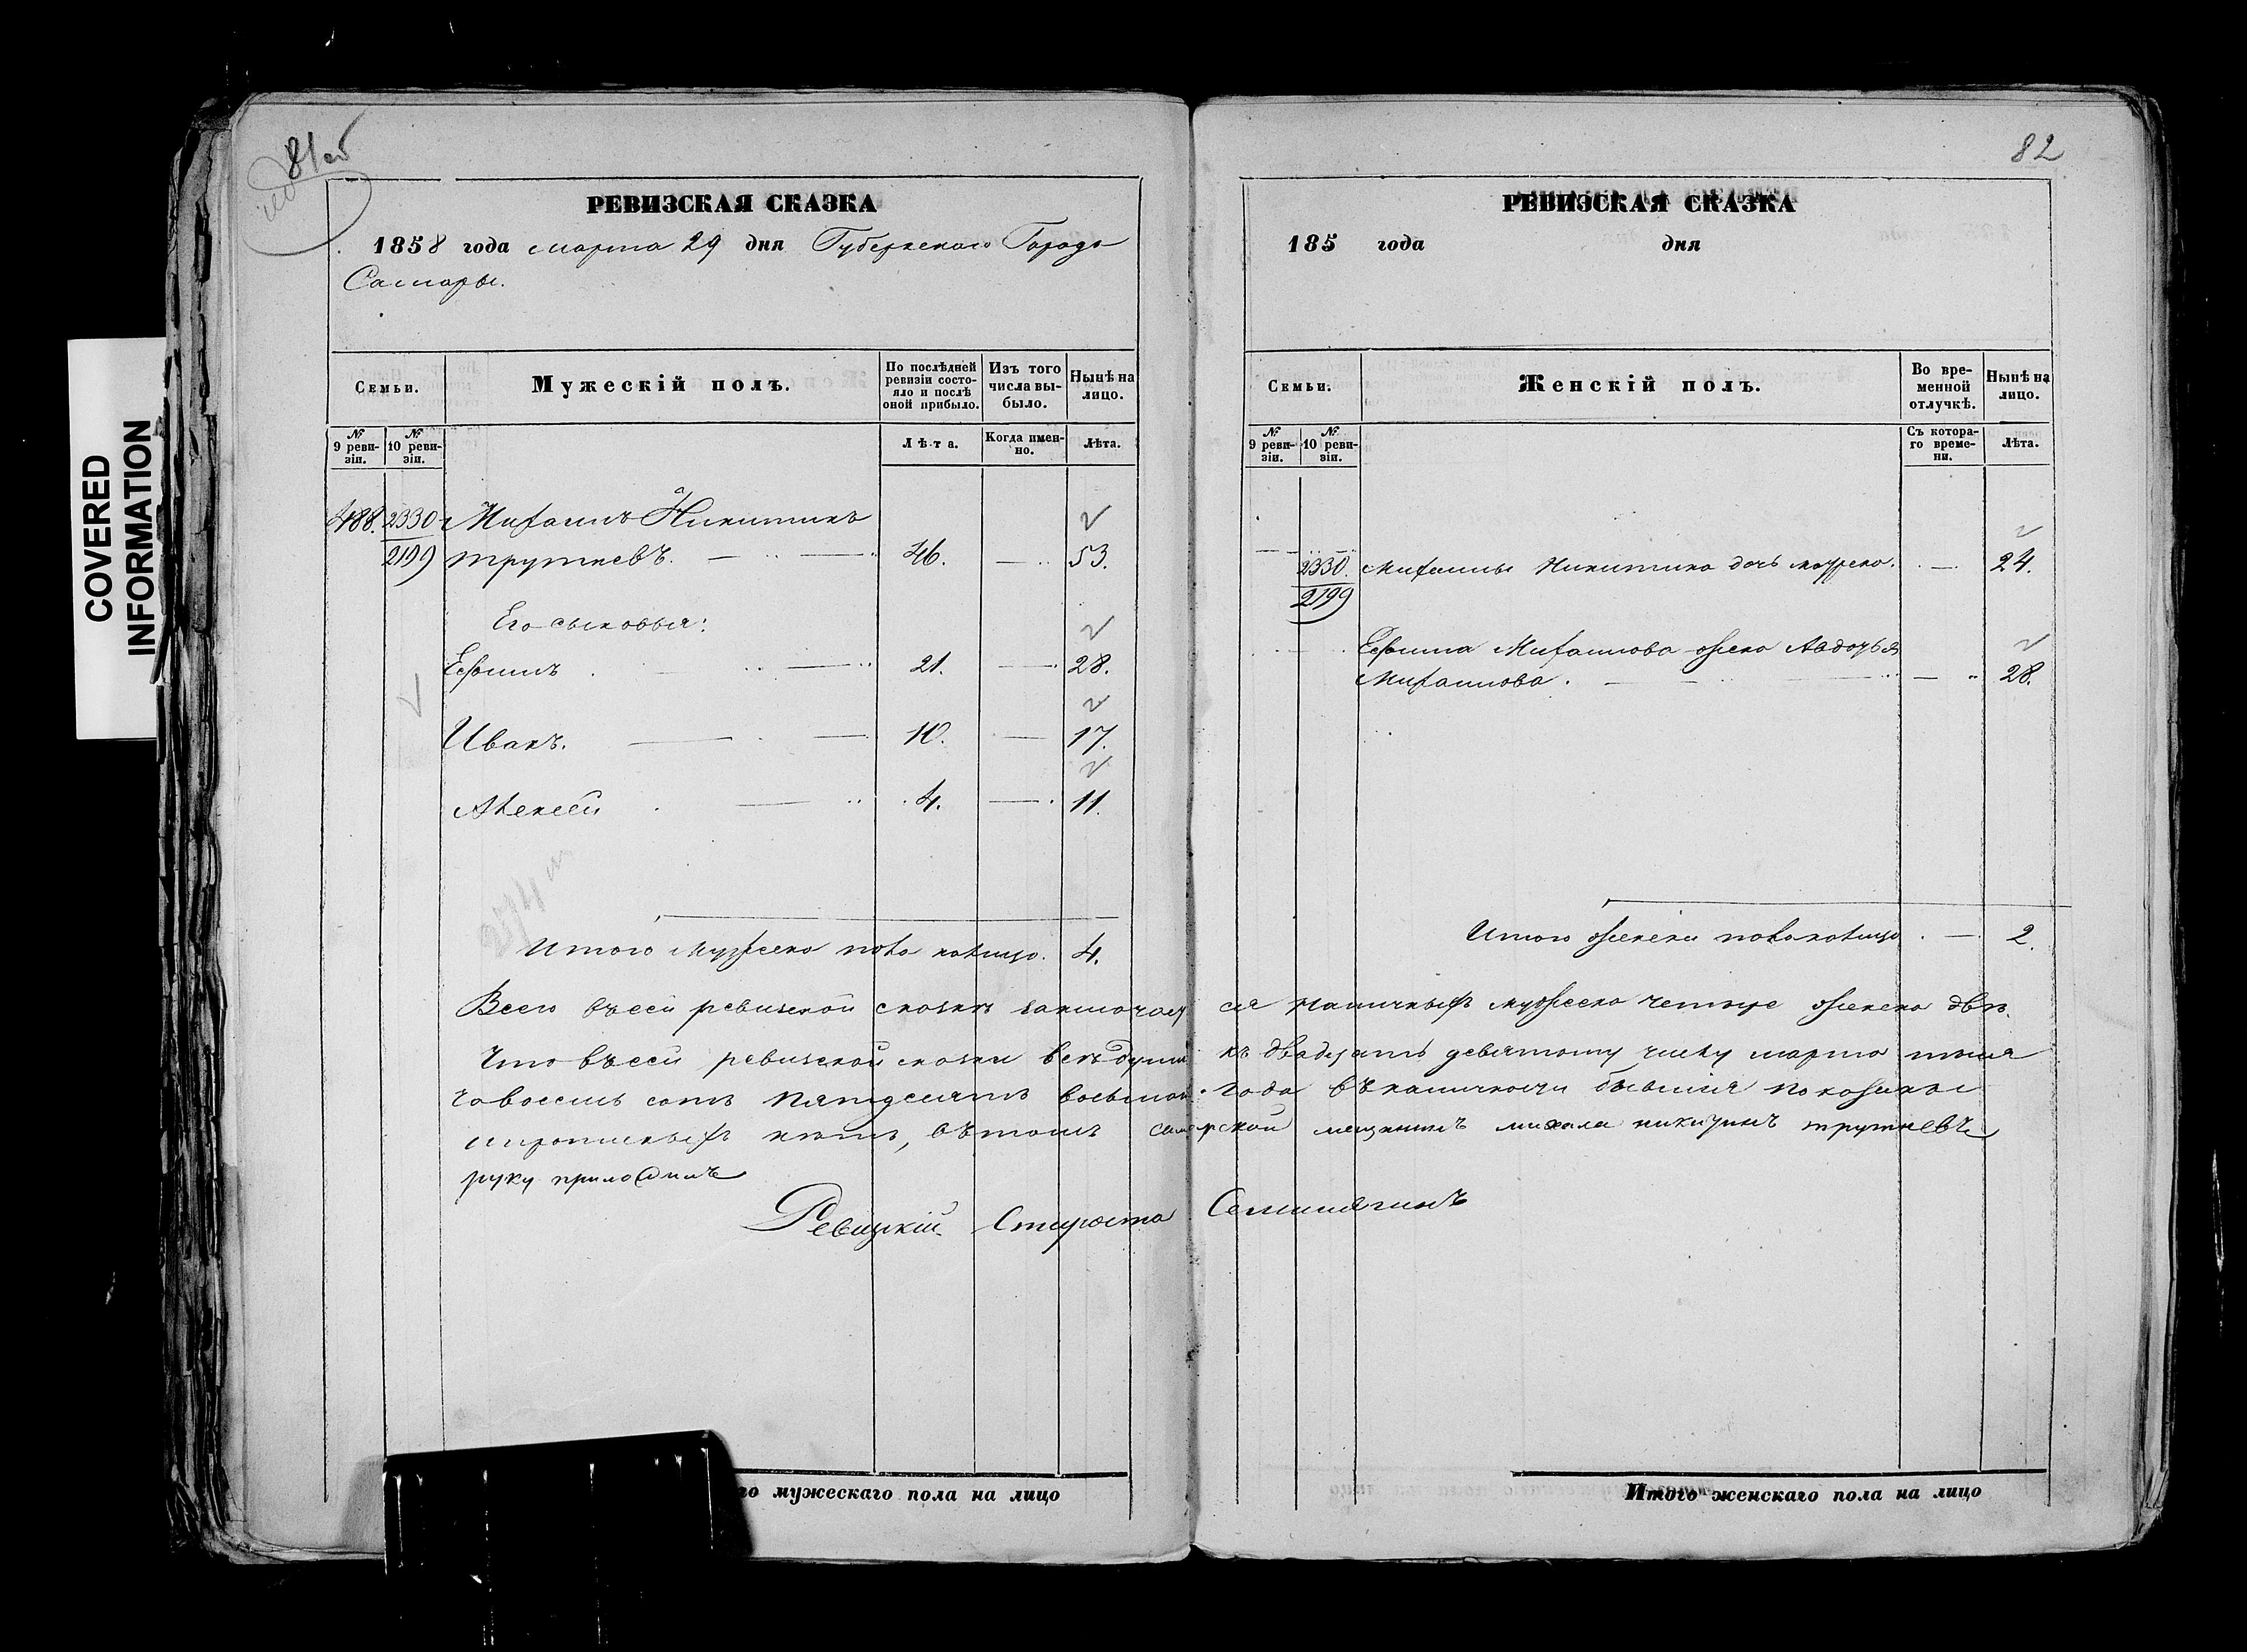 COVERED
INFORMATION
81об
82
РЕВИЗСКАЯ СКАЗКА
1858 года марта 29 дня Губернскаго Города
Самары.
Семьи.
Мужескій полъ.
По послѣдней ревизіи состояло и послѣ оной прибыло.
Изъ того числа выбыло.
Нынѣ на лицо.
№ 9 ревизіи.
№ 10 ревизіи.
Лѣта.
Когда именно.
Лѣта.
488. 2330 Михаилъ Никитинъ
2199 трутневъ. 46. 53.
Его сыновья:
Ефимъ 21. 28.
Иванъ. 10. 17.
Алексей 4. 11.
Итого мужеска пола налицо. 4.
РЕВИЗСКАЯ СКАЗКА
185 года дня
Семьи.
Женскій полъ.
Во временной отлучкѣ.
Нынѣ на лицо.
№ 9 ревизіи.
№ 10 ревизіи.
Съ котораго времени.
Лѣта.
2330. Михаилы Никитина дочь 24.
2199
Ефима Михаилова жена Авдотья
Михаилова. 28.
Итого женска пола налицо 2.
Всего въсей ревизской сказкѣ заключает ся наличныхъ мужеска четыре женска двѣ.
Что въсей ревизской сказки всѣ души къ двадцать девятому числу марта тысяча
восемь сотъ пятдесятъ восьмаго года въналичности бывшия показаны
ипрописныхъ нѣтъ, вътомъ самарской мещанинъ михаила никитинъ трутневъ
руку приложилъ
Ревизкій Староста
го мужескаго пола на лицо
Итого женскаго пола на лицо